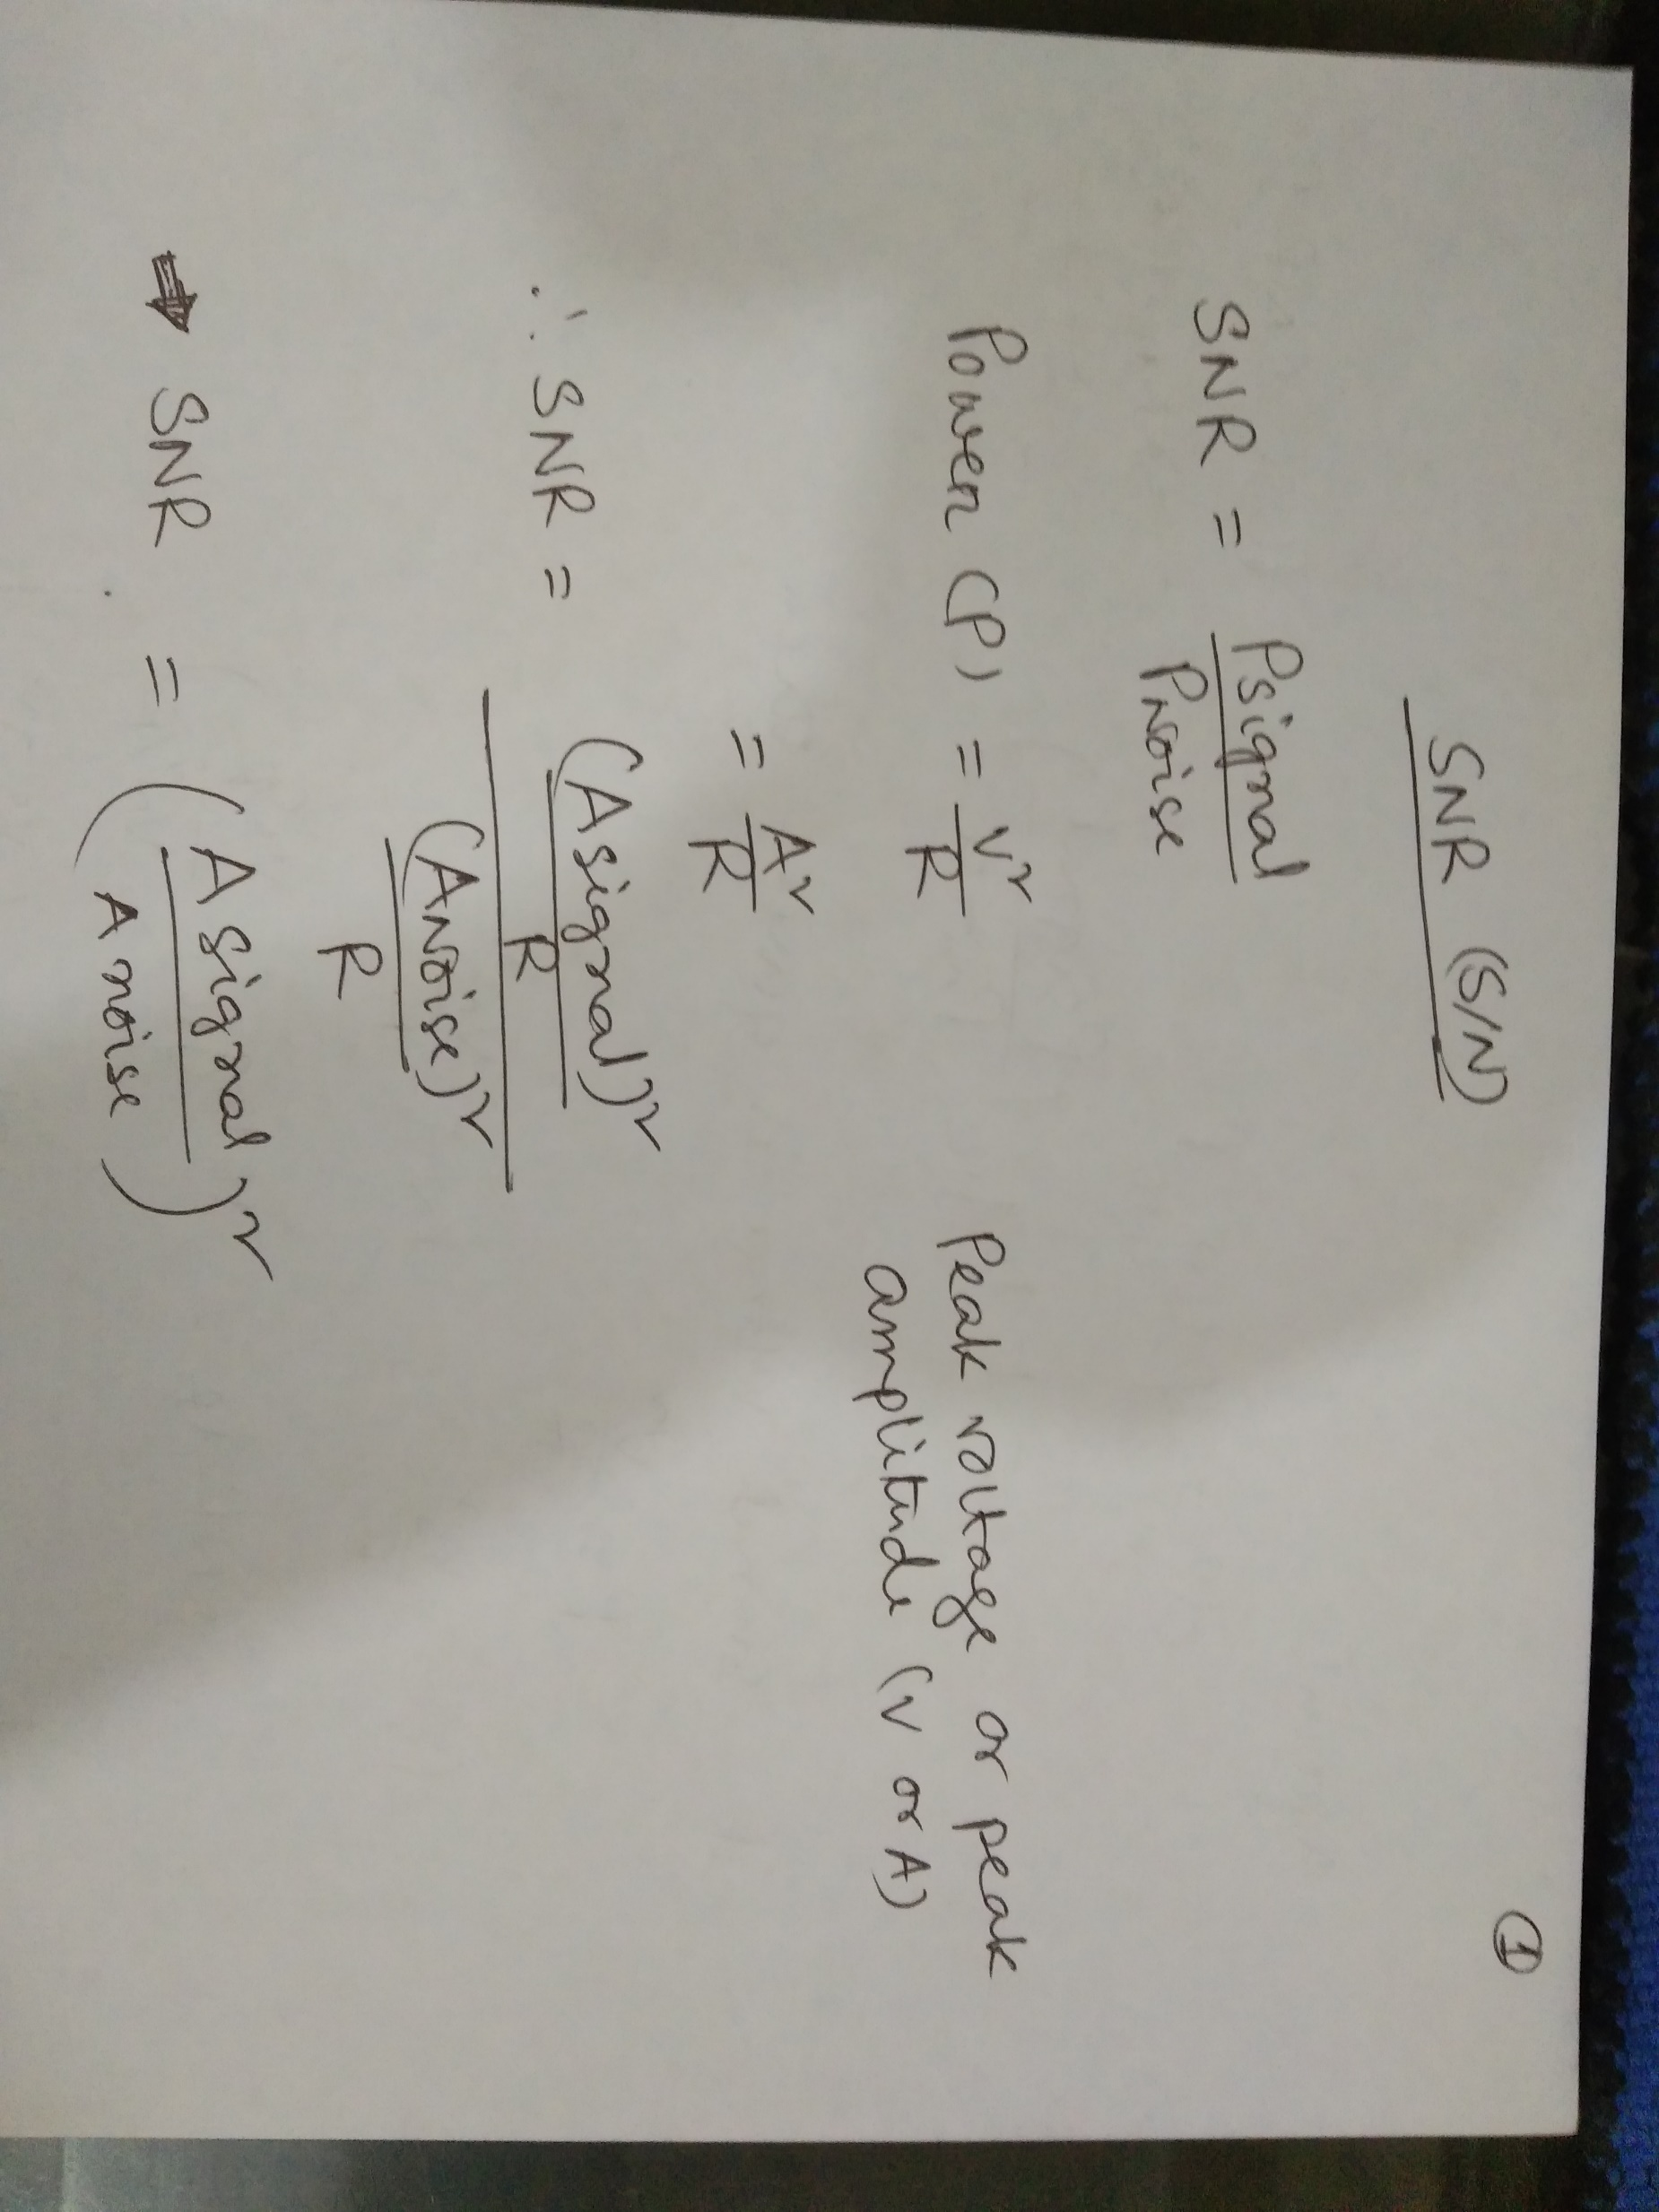 ①
SNR (S/N)
SNR = Psignal / PNoise
Power (P) = V² / R
Peak voltage or peak
amplitude (V or A)
= A² / R
∴ SNR = (Asignal)² / R / (ANoise)² / R
⇒ SNR = (Asignal / Anoise)²